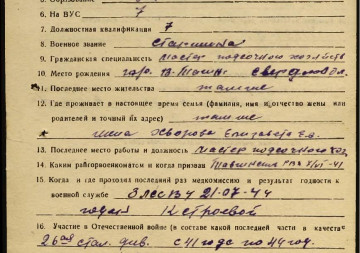 6. На ВУС 7
7. Должностная квалификация 7
8. Военное звание старшина
9. Гражданская специальность мастер подсочного хозяйств
10. Место рождения гор. Н-Тагил
11. Последнее место жительства там же
12. Где проживает в настоящее время семья (фамилия, имя и отчество жены или
родителей и точный их адрес) там же
жена Хворова Елизавета
13. Последнее место работы и должность мастер подсочного хоз.
14. Каким райгорвоенкоматом и когда призван РВК VI-41
15. Когда и где проходил последний раз медкомиссию и результат годности к
военной службе ЭЛССВУ 21-07-44
годен к строевой
16. Участие в Отечественной войне (в составе какой последней части и в качестве
26ая стал. див. с 41 года по 44 год.